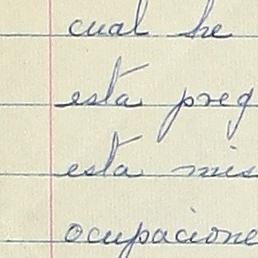 cual he
esta preg
esta mis
ocupacione